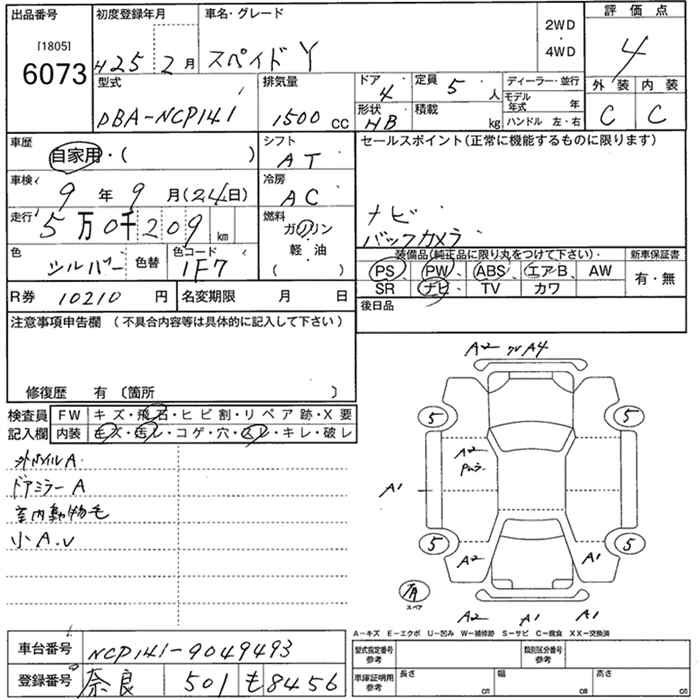 出品番号 初度登録年月 車名・グレード 2WD・4WD 評価点
[1805]
6073 H25 2月 スペイド Y 4
型式 排気量 ドア 4 定員 5人 ディーラー・並行 外装 内装
DBA-NCP141 1500cc 形状 HB 積載 kg モデル年式 年 C C
ハンドル 左・右
車歴 自家用・( ) シフト AT セールスポイント(正常に機能するものに限ります)
車検 9年9月(24日) 冷房 AC
走行 5万0千209km 燃料 ガソリン ナビ
軽・油 バックカメラ
色 シルバー 色替 色コード 1F7 ( )
装備品(純正品に限り丸をつけて下さい) 新車保証書
PS PW ABS エアB AW 有・無
SR ナビ TV カワ
R券 10210円 名変期限 月 日 後日品
注意事項申告欄 (不具合内容等は具体的に記入して下さい)
修復歴 有 〔箇所 〕
検査員 FW キズ・飛石・ヒビ割・リペア跡・X要
記入欄 内装 キズ・汚レ・コゲ・穴・スレ・キレ・破レ
ドアミラーA
室内動物毛
小A.U
A2 A4
5 5
A2
A1
5 5
A2 A1
有
スペア
A2 A1 A1
A-キズ E-エクボ U-凹み W-補修跡 S-サビ C-腐食 XX-交換済
車台番号 NCP141-9049493 型式指定番号 参考 類別区分番号 参考
登録番号 奈良 501 も8456 車庫証明用 参考 長さ cm 幅 cm 高さ cm